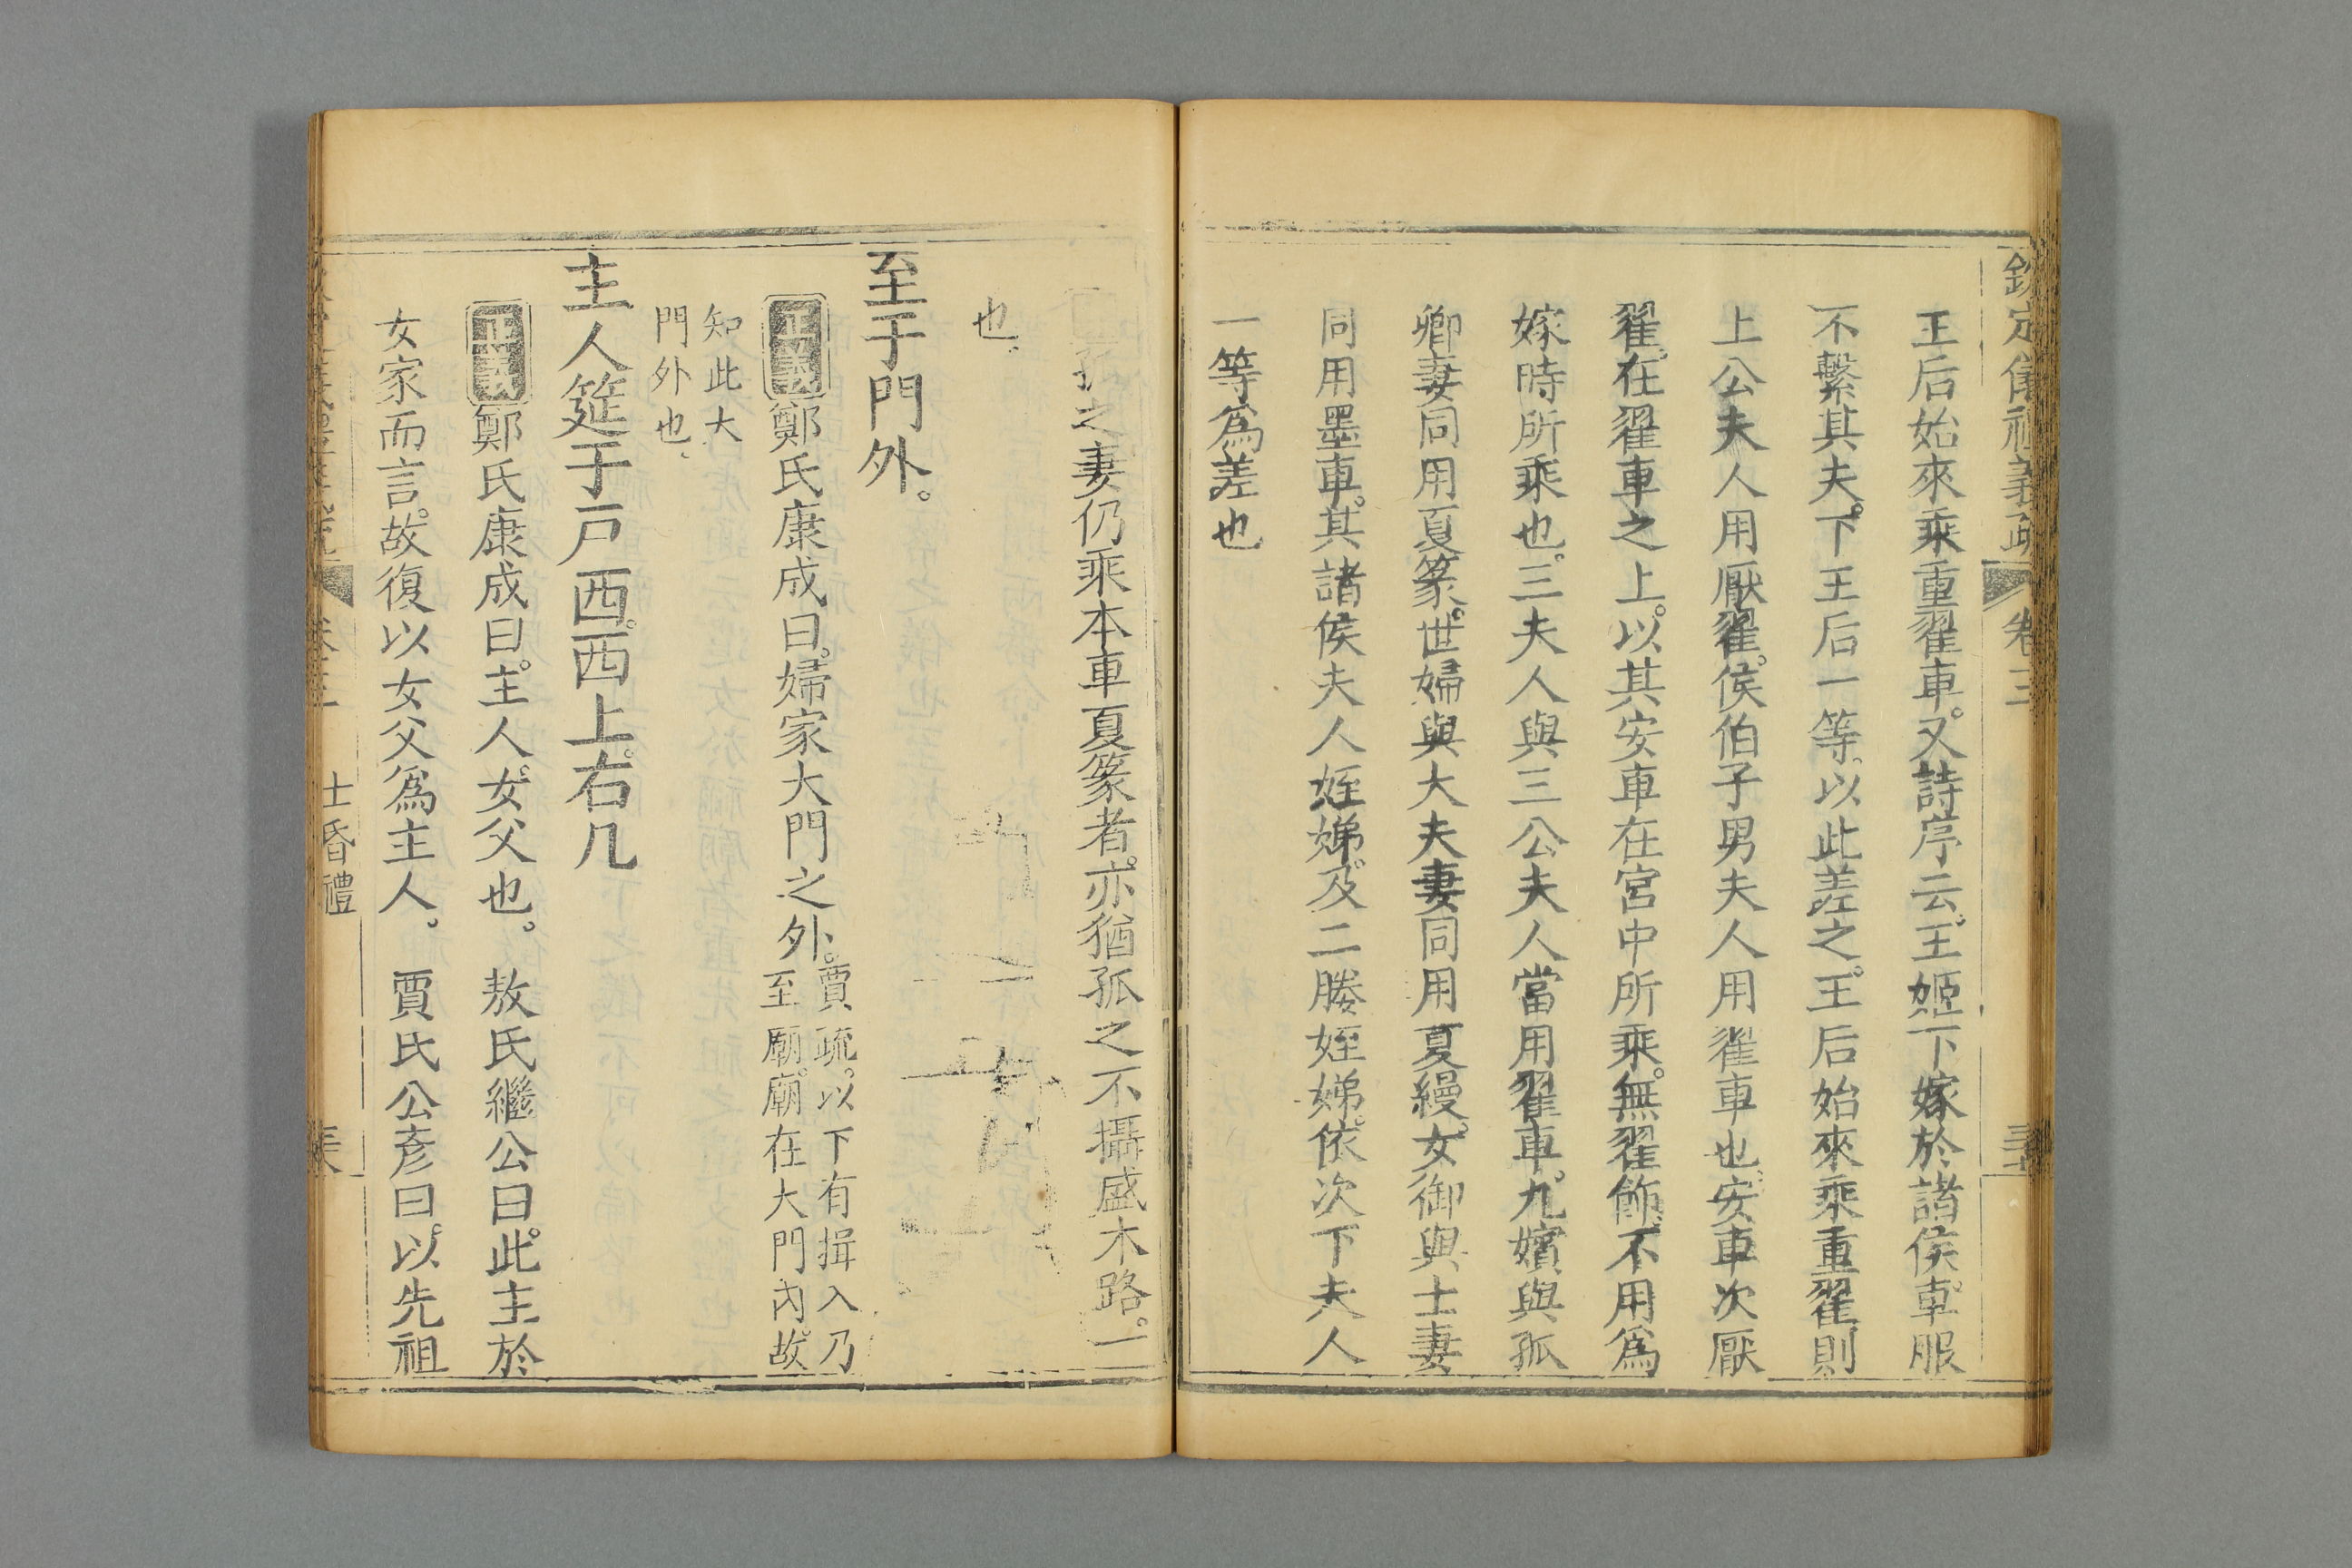 欽定儀禮義疏 卷三
王后始來乘重翟車。又詩序云。王姬下嫁於諸侯。車服
不繫其夫。下王后一等。以此差之。王后始來乘重翟則
上公夫人用厭翟。侯伯子男夫人用翟車也。安車次厭
翟。在翟車之上。以其安車在宮中所乘。無翟飾。不用爲
嫁時所乘也。三夫人與三公夫人當用翟車。九嬪與孤
卿妻同用夏篆。世婦與大夫妻同用夏縵。女御與士妻
同用墨車。其諸侯夫人姪娣。及二媵姪娣。依次下夫人
一等爲差也
孤之妻仍乘本車夏篆者。亦猶孤之不攝盛木路。一
也。
至于門外。
正義鄭氏康成曰。婦家大門之外。賈疏。以下有揖入乃
至廟。廟在大門內。故
知此大
門外也。
主人筵于戸西。西上。右几
正義鄭氏康成曰。主人。女父也。 敖氏繼公曰。此主於
女家而言。故復以女父爲主人。 賈氏公彥曰。以先祖
卷三 士昏禮